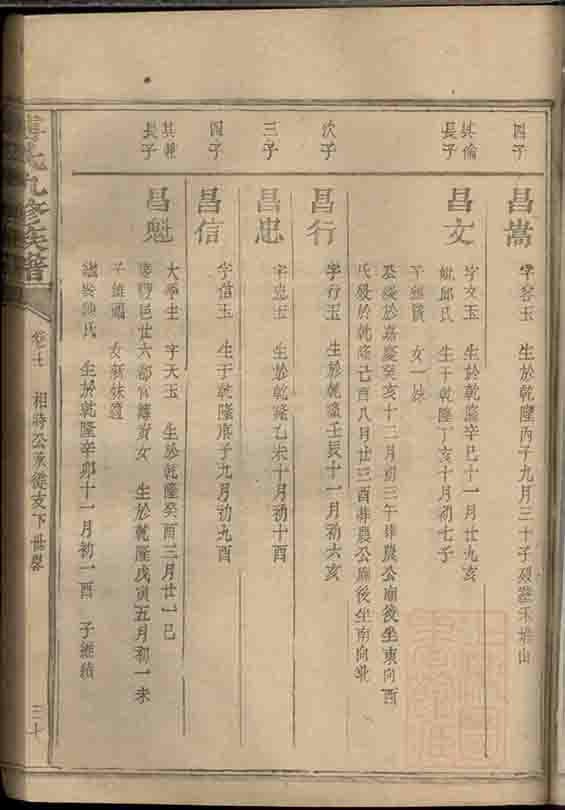 四子
昌嵩
字容玉 生於乾隆丙子九月三十子 歿葬禾塘山
其倫長子
昌文
字文玉 生於乾隆辛巳十一月廿九亥
妣邱氏 生于乾隆丁亥十月初七子
子 女一妹
公歿於嘉慶癸亥十二月初三午葬農公廟後坐東向酉
氏歿於乾隆己酉八月廿三酉葬農公廟後坐南向北
次子
昌行
字行玉 生於乾隆壬辰十一月初六亥
三子
昌忠
字忠玉 生於乾隆乙未十月初十酉
四子
昌信
字信玉 生于乾隆庚子九月初九酉
其 長子
昌魁
大學生 字天玉 生於乾隆癸酉三月廿一巳
娶 邑廿六都官 女 生於乾隆戊寅五月初一未
子 女
氏 生於乾隆辛卯十一月初一酉 子繼績
傅氏九修族譜
卷七 相特公 從支下世畧
三十